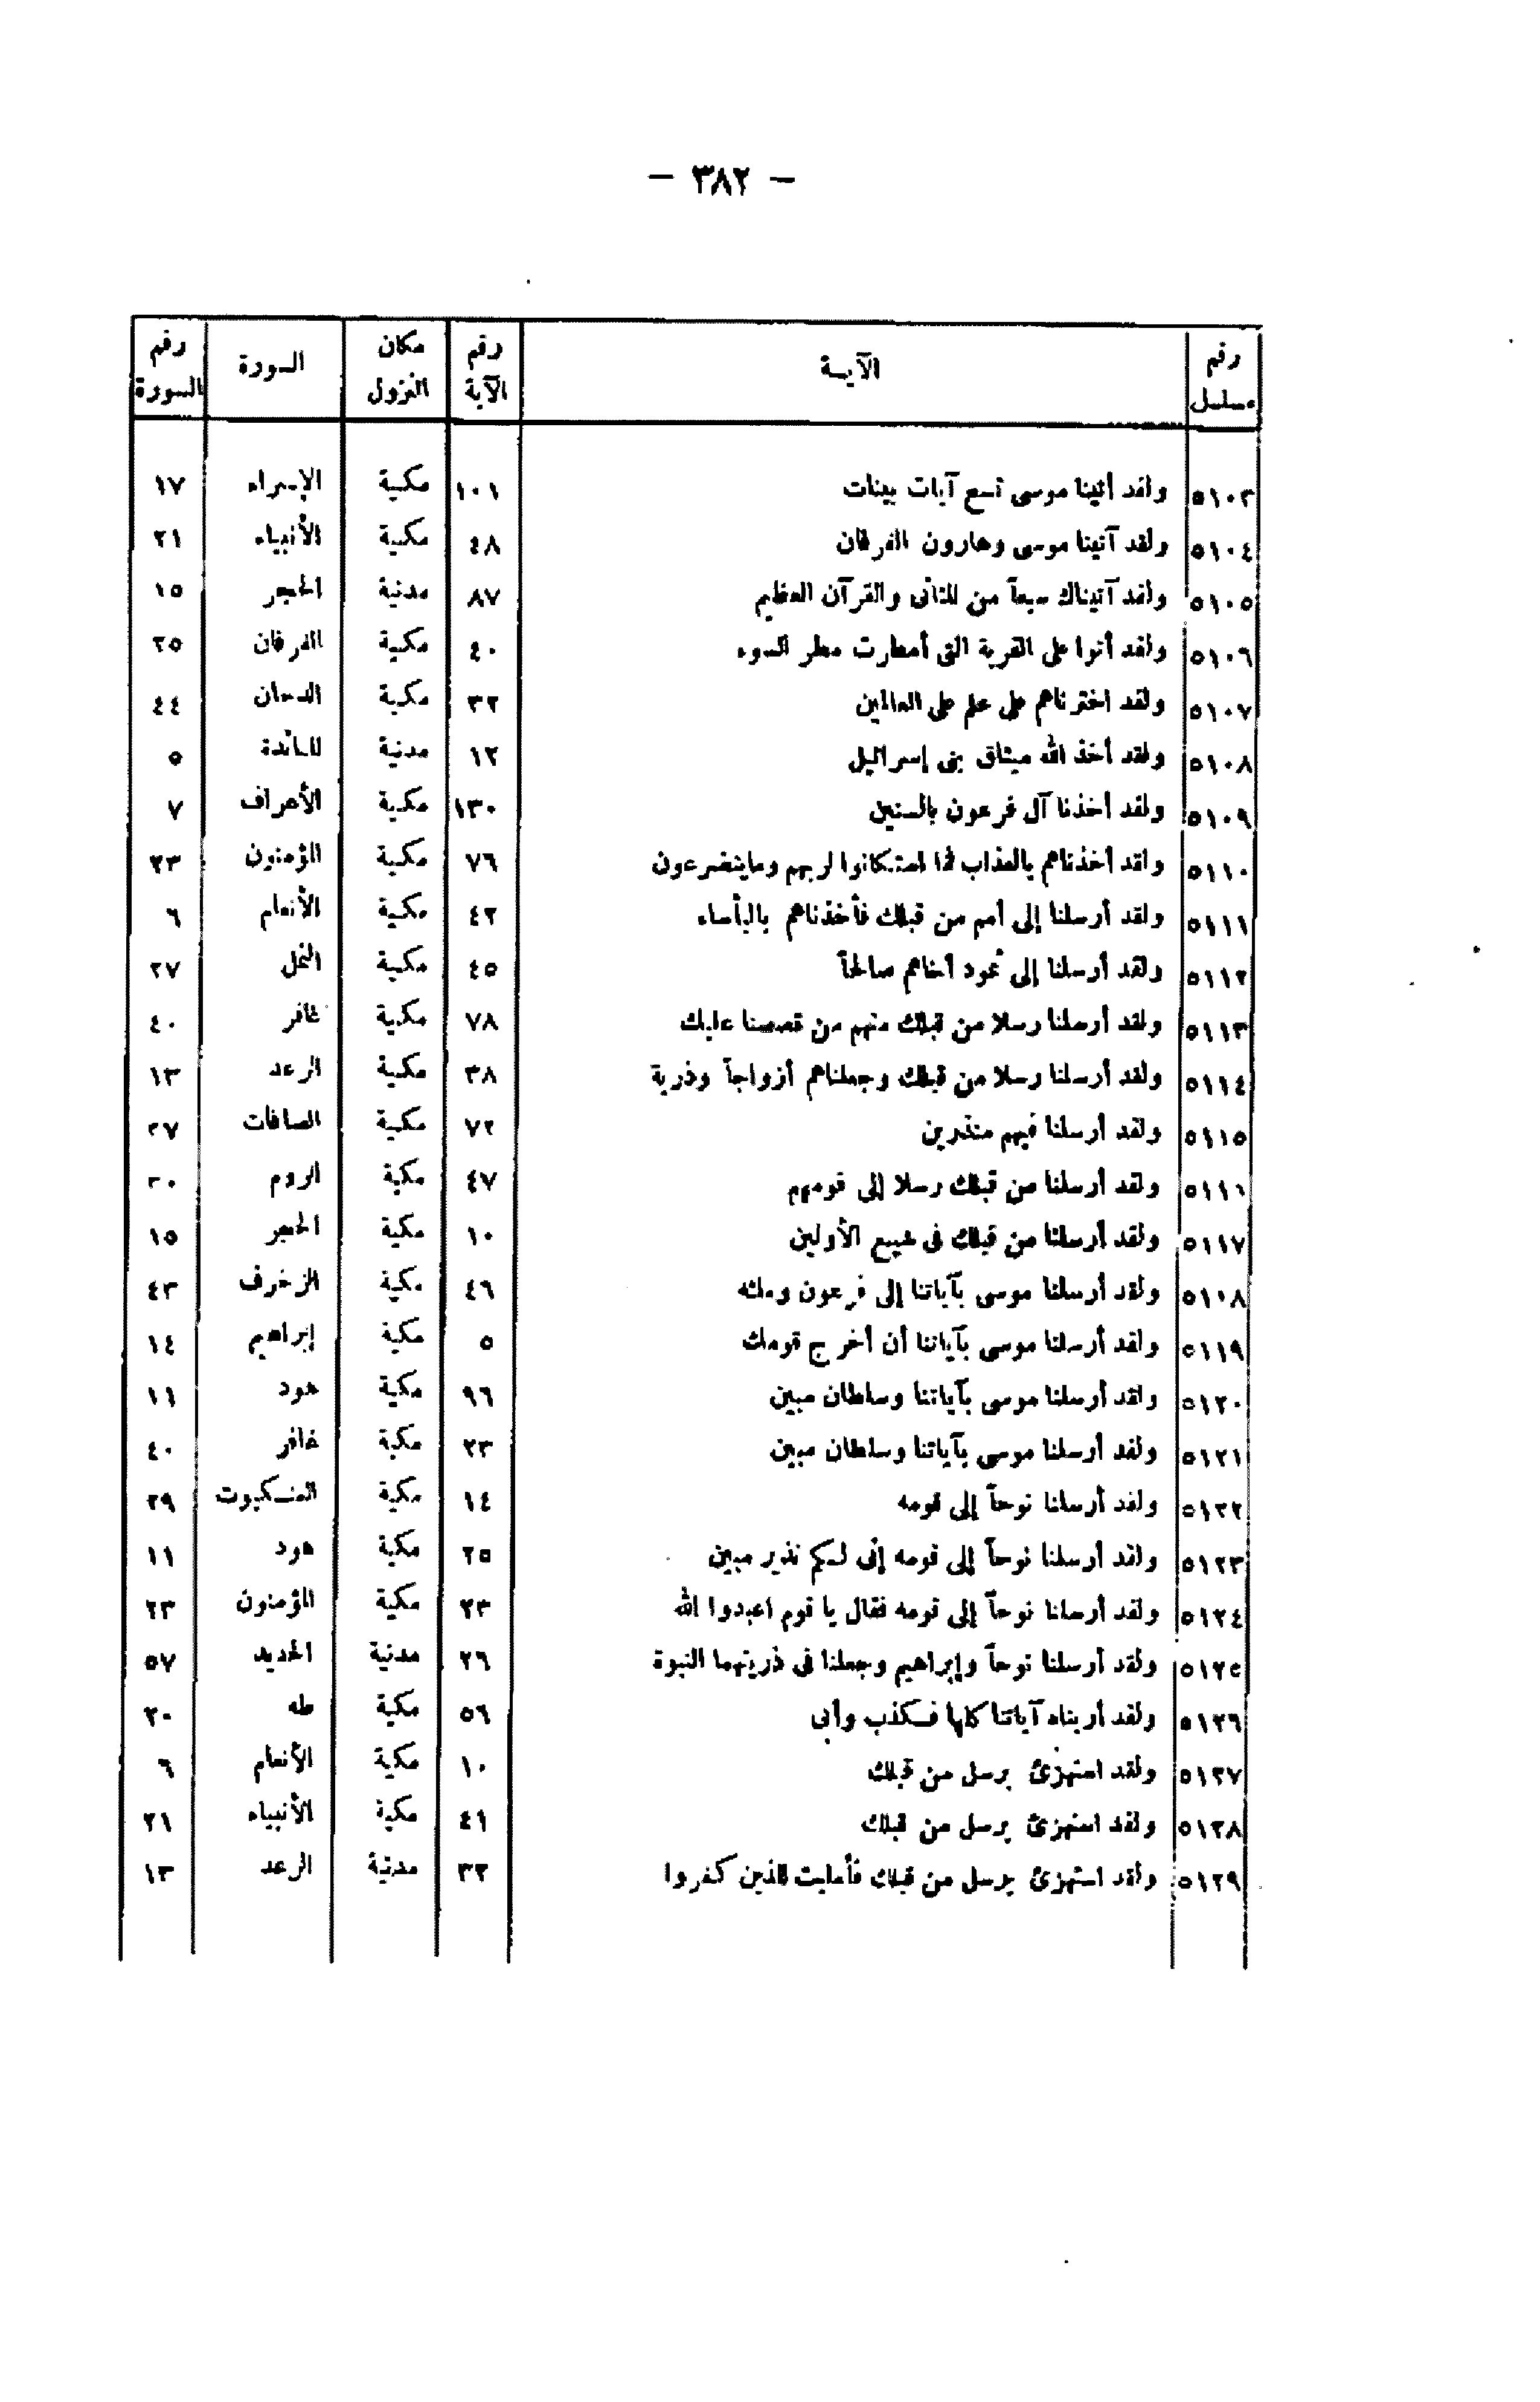 — ٣٨٢ —
رقم مسلسل الآيـة رقم الآية مكان النزول السورة رقم السورة
٥١٠٣ ولقد آتينا موسى تسع آيات بينات ١٠١ مكية الإسراء ١٧
٥١٠٤ ولقد آتينا موسى وهارون الفرقان ٤٨ مكية الأنبياء ٢١
٥١٠٥ ولقد آتيناك سبعاً من المثانى والقرآن العظيم ٨٧ مدنية الحجر ١٥
٥١٠٦ ولقد أتوا على القرية التى أمطرت مطر السوء ٤٠ مكية الفرقان ٢٥
٥١٠٧ ولقد اخترناهم على علم على العالمين ٣٢ مكية الدخان ٤٤
٥١٠٨ ولقد أخذ الله ميثاق بنى إسرائيل ١٢ مدنية المائدة ٥
٥١٠٩ ولقد أخذنا آل فرعون بالسنين ١٣٠ مكية الأعراف ٧
٥١١٠ ولقد أخذناهم بالعذاب فما استكانوا لربهم وما يتضرعون ٧٦ مكية المؤمنون ٢٣
٥١١١ ولقد أرسلنا إلى أمم من قبلك فأخذناهم بالبأساء ٤٢ مكية الأنعام ٦
٥١١٢ ولقد أرسلنا إلى ثمود أخاهم صالحاً ٤٥ مكية النمل ٢٧
٥١١٣ ولقد أرسلنا رسلا من قبلك منهم من قصصنا عليك ٧٨ مكية غافر ٤٠
٥١١٤ ولقد أرسلنا رسلا من قبلك وجعلناهم أزواجاً وذرية ٣٨ مكية الرعد ١٣
٥١١٥ ولقد أرسلنا فيهم منذرين ٧٢ مكية الصافات ٣٧
٥١١٦ ولقد أرسلنا من قبلك رسلا إلى قومهم ٤٧ مكية الروم ٣٠
٥١١٧ ولقد أرسلنا من قبلك فى شيع الأولين ١٠ مكية الحجر ١٥
٥١٠٨ ولقد أرسلنا موسى بآياتنا إلى فرعون وملئه ٤٦ مكية الزخرف ٤٣
٥١١٩ ولقد أرسلنا موسى بآياتنا أن أخرج قومك ٥ مكية إبراهيم ١٤
٥١٢٠ ولقد أرسلنا موسى بآياتنا وسلطان مبين ٩٦ مكية هود ١١
٥١٢١ ولقد أرسلنا موسى بآياتنا وسلطان مبين ٢٣ مكية غافر ٤٠
٥١٢٢ ولقد أرسلنا نوحاً إلى قومه ١٤ مكية العنكبوت ٢٩
٥١٢٣ ولقد أرسلنا نوحاً إلى قومه إنى لكم نذير مبين ٢٥ مكية هود ١١
٥١٢٤ ولقد أرسلنا نوحاً إلى قومه فقال يا قوم اعبدوا الله ٢٣ مكية المؤمنون ٢٣
٥١٢٥ ولقد أرسلنا نوحاً وإبراهيم وجعلنا فى ذريتهما النبوة ٢٦ مدنية الحديد ٥٧
٥١٢٦ ولقد أريناه آياتنا كلها فكذب وأبى ٥٦ مكية طه ٢٠
٥١٢٧ ولقد استهزئ برسل من قبلك ١٠ مكية الأنعام ٦
٥١٢٨ ولقد استهزئ برسل من قبلك ٤١ مكية الأنبياء ٢١
٥١٢٩ ولقد استهزئ برسل من قبلك فأمليت للذين كفروا ٣٢ مدنية الرعد ١٣